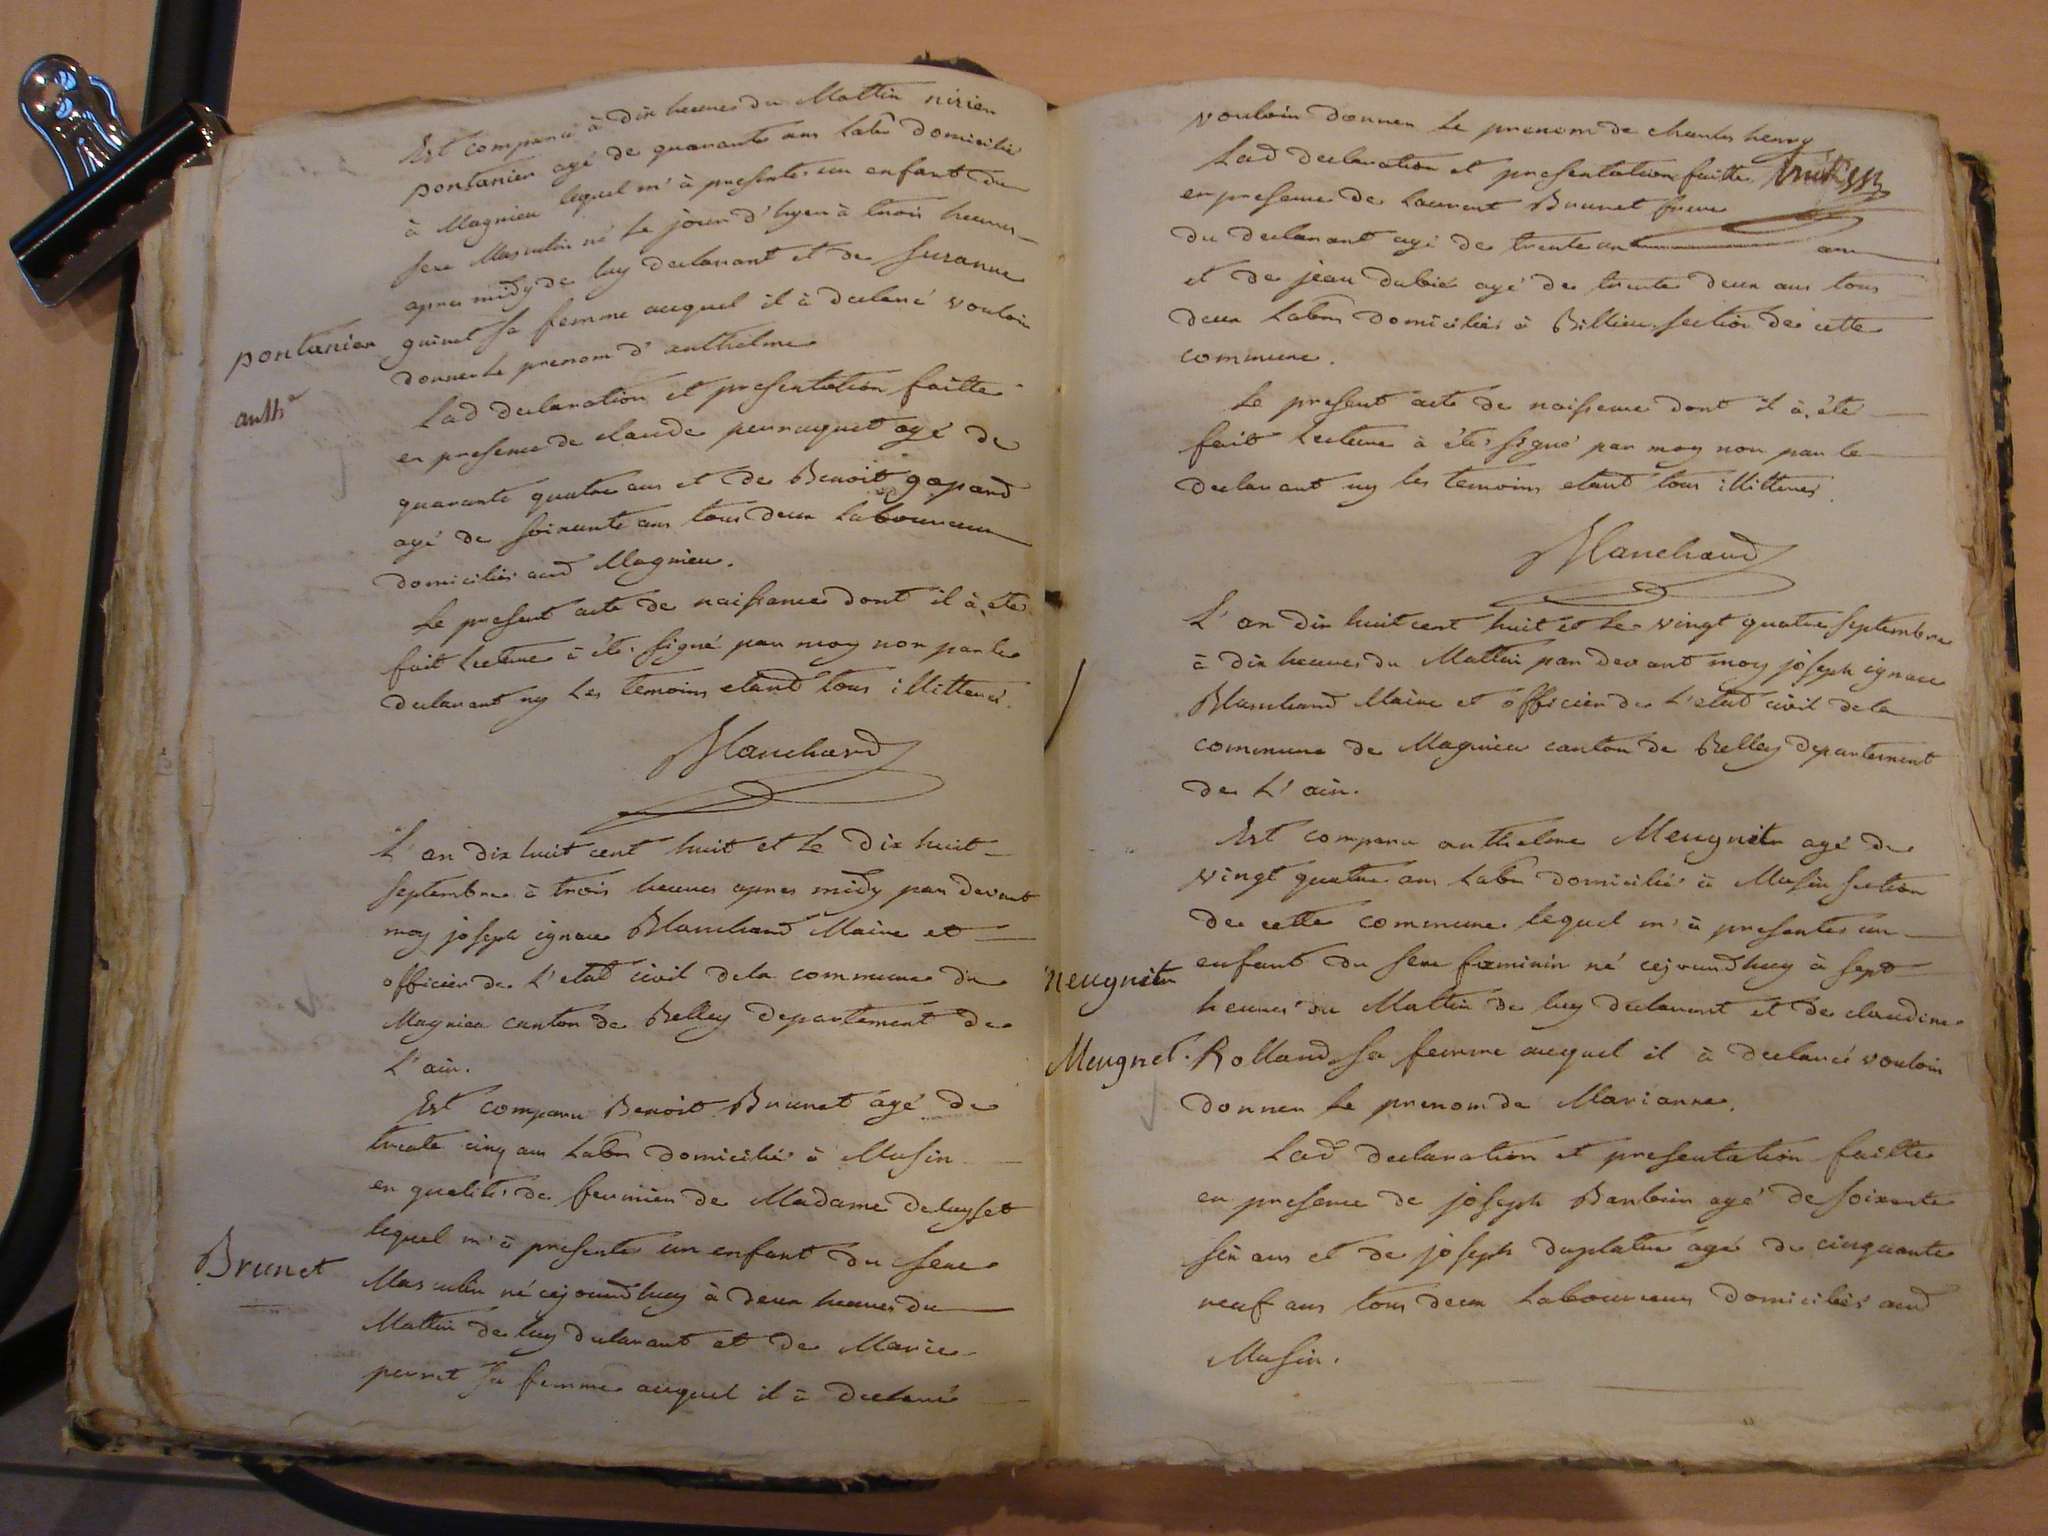 Est comparu à dix heures du Mattin
pontanier agé de quarante ans labr domicilié
à Magnieu lequel m'à presenté un enfant du
sexe Masculin né le jour d'hyer à trois heures
apres midy de luy declarant et de Suzanne
guinet sa femme auquel il à declaré vouloir
donner le prenom d'anthelme
pontanier
anthe
Lad declaration et presentation faitte
en presence de claude perruquet agé de
quarante quatre ans et de Benoit
agé de soixante ans tous deux laboureurs
domiciliés aud Magnieu.
Le present acte de naissance dont il à été
fait lecture à été signé par moy non par le
declarant ny les temoins etant tous illitterés.
Blanchard
L'an dix huit cent huit et le dix huit
septembre à trois heures apres midy par devant
moy joseph ignace Blanchard Maire et
officier de l'etat civil de la commune de
Magnieu canton de Belley departement de
L'ain.
Est comparu Benoit Brunet agé de
trente cinq ans labr domicilié à Musin
en qualité de fermier de Madame deluyset
lequel m'à presenté un enfant du sexe
Brunet
Masculin né cejourd'huy à deux heures du
Mattin de luy declarant et de Marie
perret sa femme auquel il à declaré
vouloir donner le prenom de charles henry
Lad declaration et presentation faitte
en presence de Laurent Brunet frere
du declarant agé de trente un ans
et de jean dubié agé de trente deux ans tous
deux labrs domiciliés à Billieu section de cette
commune.
Le present acte de naissance dont il à été
fait lecture à été signé par moy non par le
declarant ny les temoins etant tous illitterés.
Blanchard
L'an dix huit cent huit et le vingt quatre septembre
à dix heures du Mattin par devant moy joseph ignace
Blanchard Maire et officier de l'etat civil de la
commune de Magnieu canton de Belley departement
de L'ain.
Est comparu anthelme Meugnier agé de
vingt quatre ans labr domicilié à Musin section
de cette commune lequel m'à presenté un
enfant du sexe feminin né cejourd'huy à sept
Meugnier
heures du Mattin de luy declarant et de claudine
Meugnet.
Rolland sa femme auquel il à declaré vouloir
donner le prenom de Marianne.
Lad declaration et presentation faitte
en presence de joseph Barbin agé de soixante
six ans et de joseph duplatre agé de cinquante
neuf ans tous deux laboureurs domiciliés aud
Musin.